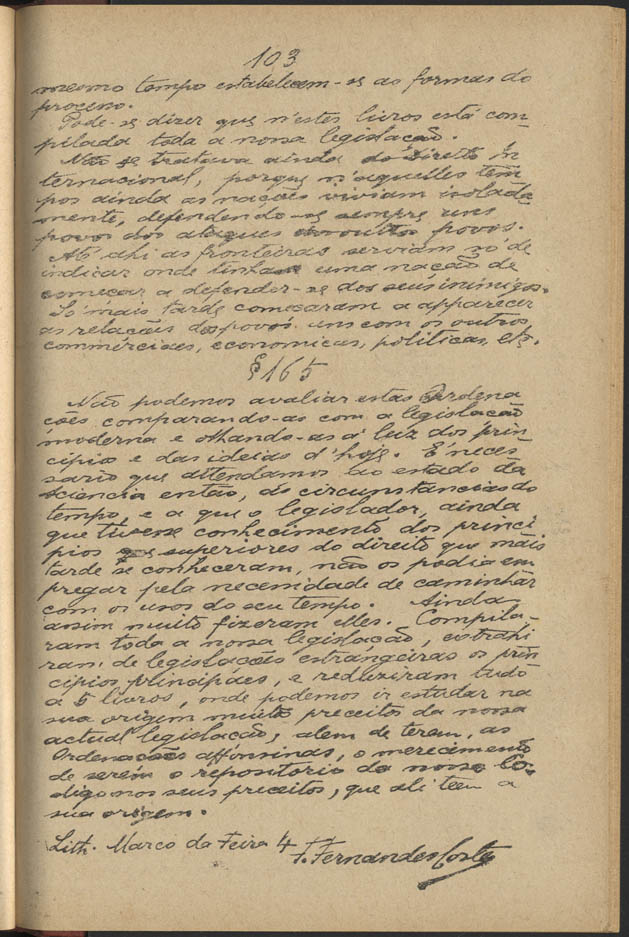 103
mesmo tempo estabelecem-se as formas do
processo.
Pode-se dizer que n'estes livros está com-
pilada toda a nossa legislação.
Não se tratava ainda do Direito in
ternacional, porque n'aquelles tem
pos ainda as nações viviam isolada
mente, defendendo-se sempre uns
povos dos ataques outros povos.
Até ahi as fronteiras serviam só de
indicar onde tinha uma nação de
começar a defender-se dos seus inimigos.
Só mais tarde começaram a apparecer
as relações dos povos uns com os outros
commerciaes, economicas, politicas, etc.
§165
Não podemos avaliar estas Ordena
ções comparando-as com a legislação
moderna e olhando-as á luz dos prin
cipios e das ideias d'hoje. É neces
sario que attendamos ao estado da
sciencia então, ás circunstancias do
tempo, e a que o legislador, ainda
que tivesse conhecimento dos princi
pios superiores do direito que mais
tarde se conheceram, não os podia em
pregar pela necessidade de caminhar
com os usos do seu tempo. Ainda
assim muito fizeram elles. Compila-
ram toda a nossa legislação, extrahi
ram de legislações estrangeiras os prin
cipios principaes, e reduziram tudo
a 5 livros, onde podemos ir estudar na
sua origem muitos preceitos da nossa
actual legislação; alem de terem, as
Ordenações affonsinas, o merecimento
de serem o repositorio do nosso Co-
digo nos seus preceitos, que ali teem a
sua origem.
Lith. Marco da Feira 4 F. Fernandes Costa